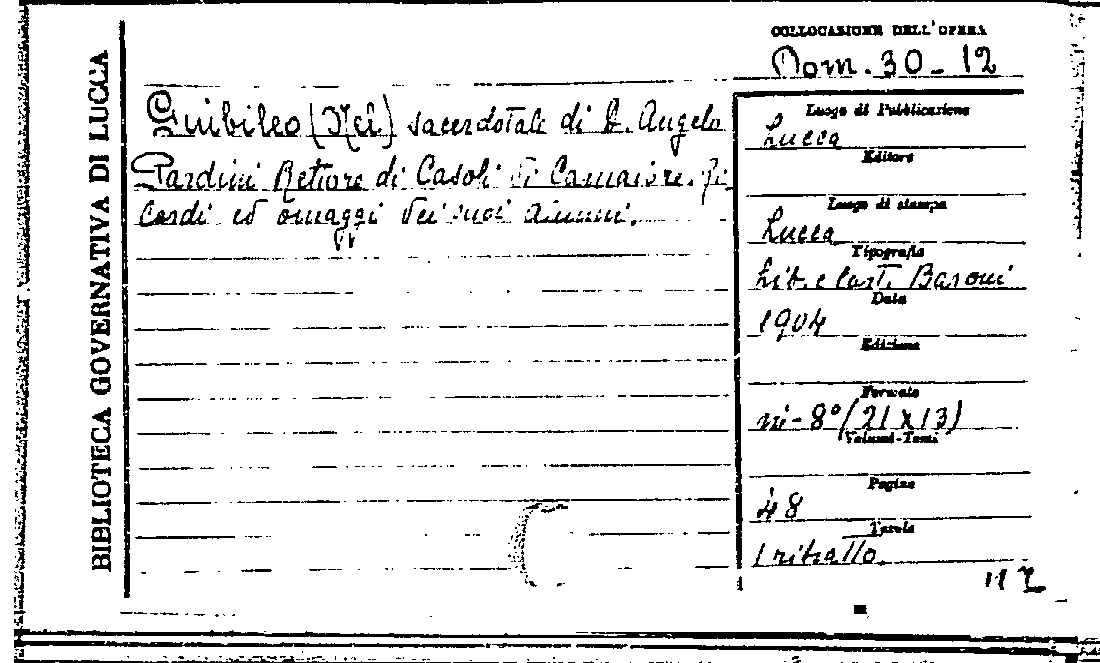 BIBLIOTECA GOVERNATIVA DI LUCCA
COLLOCAZIONE DELL'OPERA
Dom. 30-12
Giubileo (Nel) sacerdotale di D. Angelo
Pardini Rettore di Casoli di Camaiore. Ri-
cordi ed omaggi dei suoi alunni.
Luogo di Pubblicazione
Lucca
Editore
Luogo di stampa
Lucca
Tipografia
Lib. e Cart. Baroni
Data
1904
Edizione
Formato
in-8° (21x13)
Volumi-Tomi
Pagine
48
Tavole
1 ritratto.